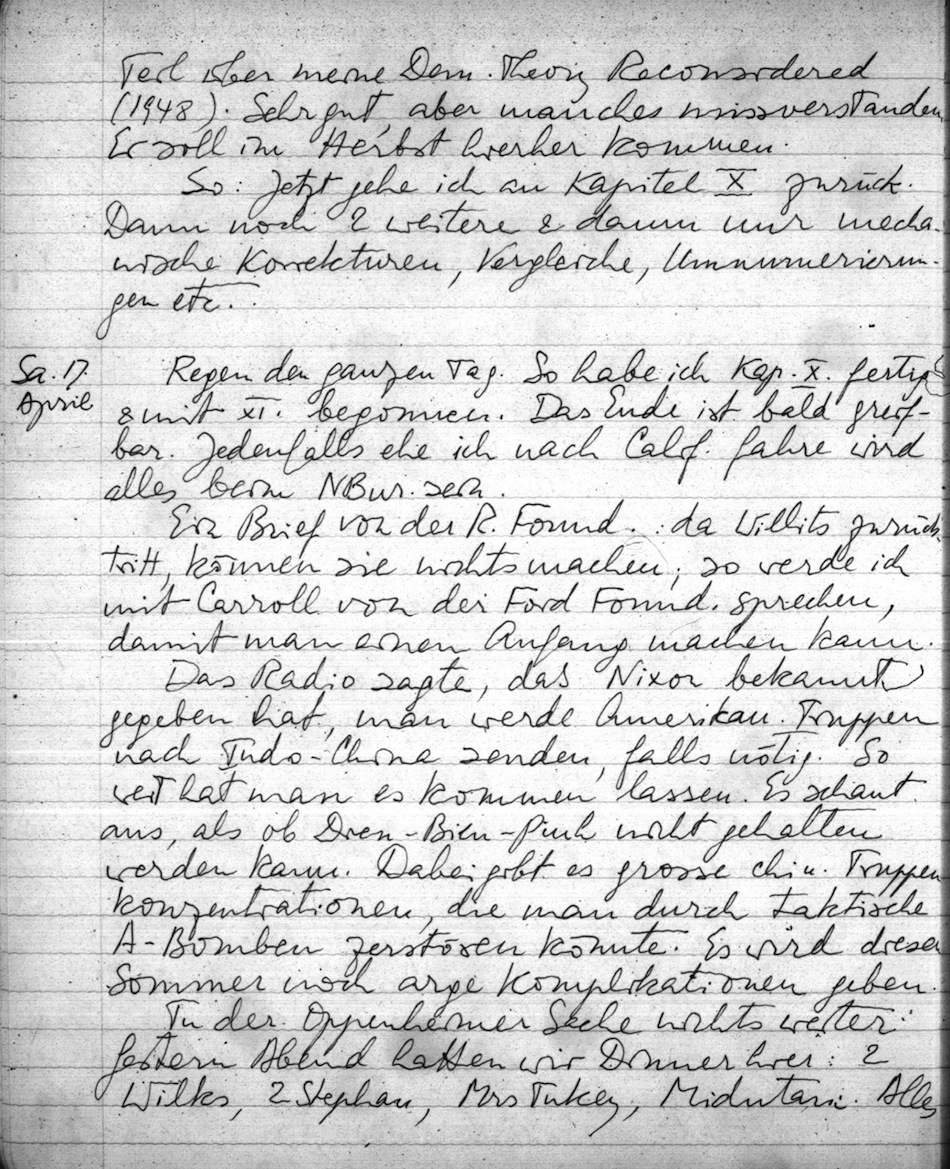 Teil über meine Dem. Theory Reconsidered
(1948). Sehr gut, aber manches missverstanden.
Er soll im Herbst hierher kommen.
So: Jetzt gehe ich an Kapitel X zurück.
Dann noch 2 weitere & dann nur mecha-
nische Korrekturen, Vergleiche, Umnumerierun-
gen etc.
Sa. 17.
April
Regen den ganzen Tag. So habe ich Kap. X. fertig
& mit XI. begonnen. Das Ende ist bald greif-
bar. Jedenfalls ehe ich nach Calif. fahre wird
alles beim NBur. sein.
Ein Brief von der R. Found.: da Willits zurück
tritt, können sie nichts machen; so werde ich
mit Carroll von der Ford Found. sprechen,
damit man einen Anfang machen kann.
Das Radio sagte, das Nixon bekannt
gegeben hat, man werde Amerikan. Truppen
nach Indo-China senden, falls nötig. So
weit hat man es kommen lassen. Es schaut
aus, als ob Dien-Bien-Puh nicht gehalten
werden kann. Dabei gibt es grosse chin. Truppen
konzentrationen, die man durch taktische
A-Bomben zerstören könnte. Es wird diesen
Sommer noch arge Komplikationen geben.
In der Oppenheimer Sache nichts weiter.
Gestern Abend hatten wir Dinner hier: 2
Wilks, 2 Stephan, Mrs Tukey, Midutani. Alles